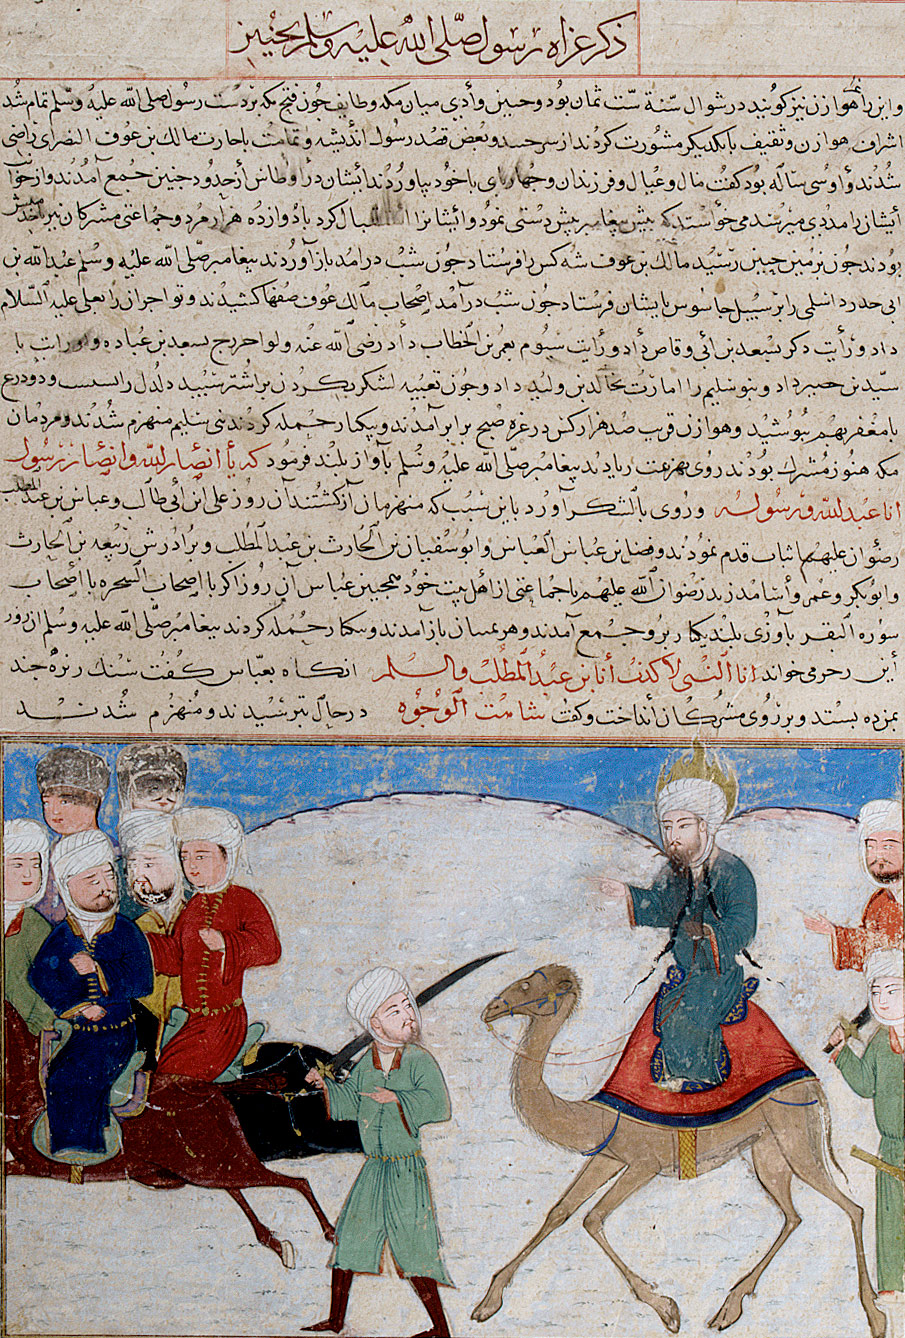 ذکر غزاه رسول صلی الله علیه وسلم بحنین
و این را هوازن نیز کویند در شوال سنة ست ثمان بود و حنین وادی میان مکه و طایف چون فتح مکه بر دست رسول صلی الله علیه وسلم تمام شد
اشراف هوازن و ثقیف با یکدیکر مشورت کردند از سر حسد و بغض قصد رسول اندیشه و تمامت با حارث مالک بن عوف النضری راضی
شدند و او سی ساله بود کفت مال و عیال و فرزندان و جهار پای با خود بیاورند ایشان در اوطاس از حدود حنین جمع آمدند و از
ایشان را مددی میرسند می خواست که پیش پیغامبر پیش دستی نمود و ایشانرا استقبال کرد با دوازده هزار مرد و جماعتی مشرکان نیز
بودند جون بزمین حنین رسید مالک بن عوف سه کس را فرستاد جون شب در امد باز آوردند پیغامبر صلی الله علیه وسلم عبد الله بن
ابی حدرد اسلمی را بر سبیل جاسوس بایشان فرستاد جون شب در آمد اصحاب مالک عوف صفها کشیدند و لواء مهاجران را بعلی علیه السلام
داد و رایت دکر بسعد بن ابی وقاص داد و رایت سیوم بعمر بن الخطاب داد رضی الله عنه و لواء خزرج بسعد بن عباده و
سید بن حضیر داد و بنو سلیم را امارت بخالد بن ولید داد و جون تعبیه لشکر بکردن بر اشتر سپید دلدل و دو درع
با مغفر بهم بپوشید و هوازن قریب صد هزار کس در غره صبح برابر آمدند و بیکبار حمله کردند بنی سلیم منهزم شدند و مردمان
مکه هنوز مشرک بودند روی بهزیمت نهادند پیغامبر صلی الله علیه وسلم بآواز بلند فرمود که یا انصار الله و انصار رسول
انا عبد الله و رسوله و روی بالشکر آورد باین سبب که منهزمان باز کشتند آن روز علی ابن ابی طالب و عباس بن عبد المطلب
رضوان علیهم ثبات قدم نمودند و فضل بن عباس العباس و ابو سفیان بن الحارث بن عبد المطلب و برادرش ربیعه بن الحارث
و ابو بکر و عمر و أسامه زید رضوان الله علیهم با جماعتی از اهل بیت خود همجنین عباس آن روز اکر با اصحاب السحره با اصحاب
سوره البقر بآوازی بلند یکبار جمع آمدند و همه باز آمدند و بیکبار حمله کردند پیغامبر صلی الله علیه وسلم ان روز
این رجز می خواند انا النبی لا کذب أنا ابن عبد المطلب والسلم انکاه بعباس کفت سنک ریزه جند
بمن ده بستد و بر روی مشرکان انداخت و کفت شاهت الوجوه در حال بترسیدند و منهزم شدند